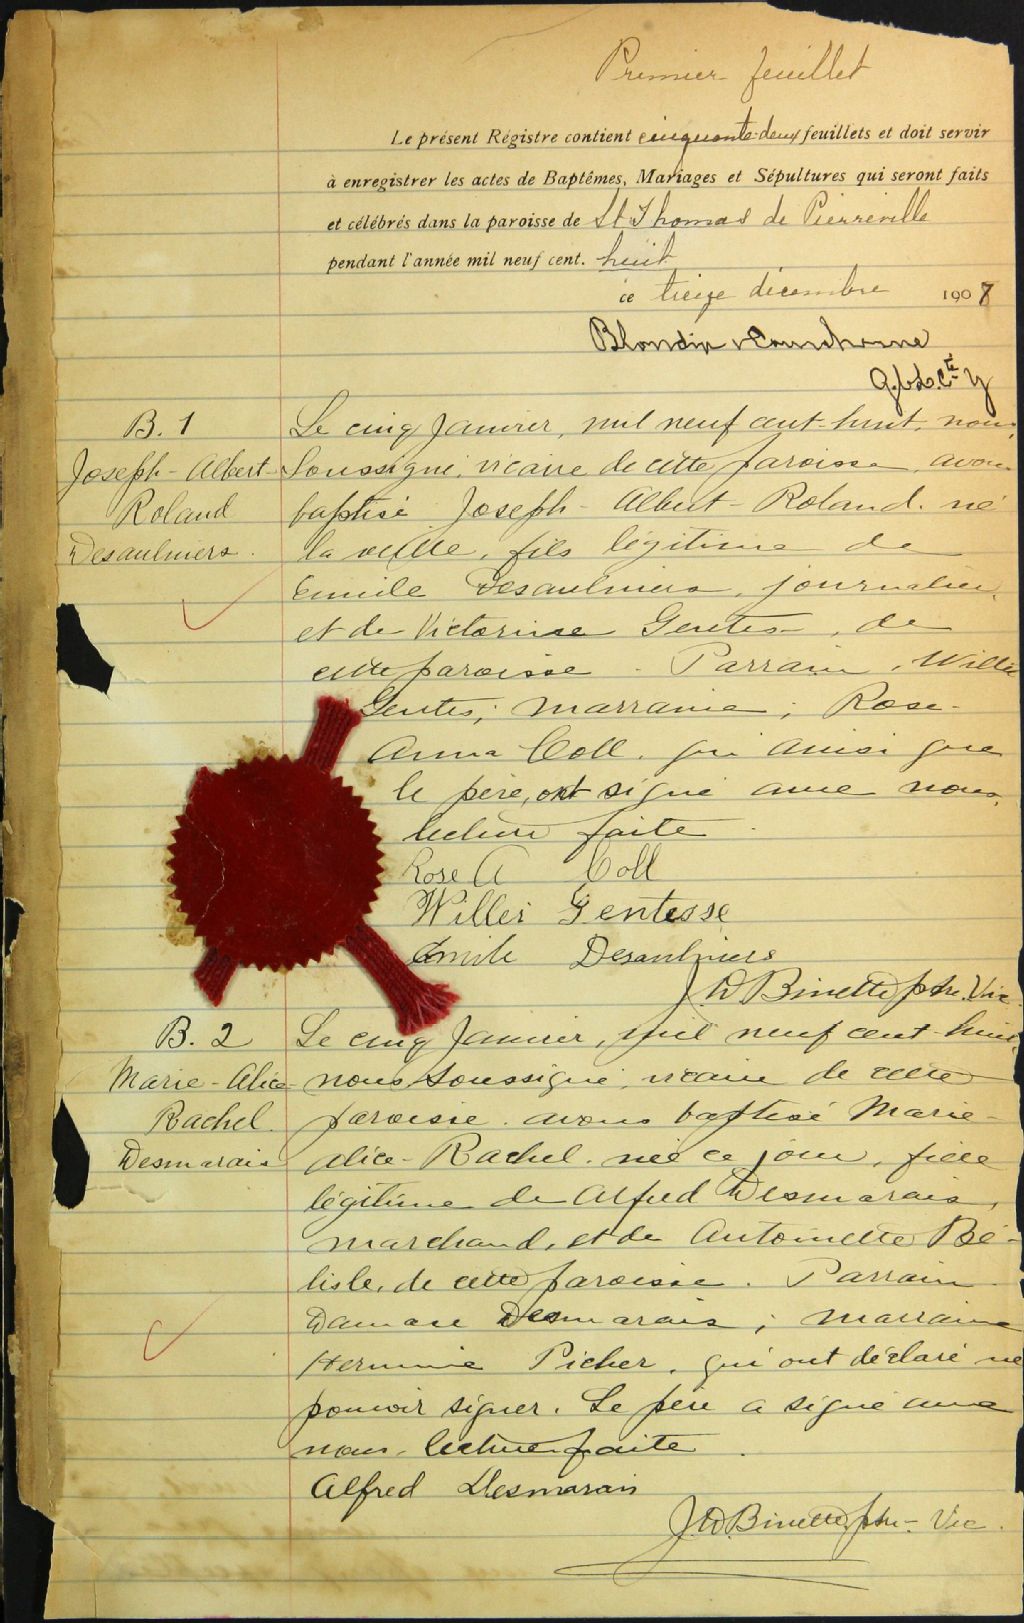 Premier feuillet
Le présent Régistre contient cinquante-deux feuillets et doit servir
à enregistrer les actes de Baptêmes, Mariages et Sépultures qui seront faits
et célébrés dans la paroisse de St Thomas de Pierreville
pendant l'année mil neuf cent. huit
ce treize décembre 1907
Blondin
B. 1
Joseph-Albert-
Roland
Desaulniers.
Le cinq Janvier, mil neuf cent-huit, nous,
soussigné, vicaire de cette paroisse, avons
baptisé Joseph-Albert-Roland. né
la veille, fils légitime de
Emile Desaulniers, journalier,
et de Victorine Gentes, de
cette paroisse. Parrain, Willie
Gentes; marraine; Rose-
Anna Coll. qui ainsi que
le père, ont signé avec nous,
lecture faite.
Rose A Coll
Willei Gentesse
Emile Desaulniers
J. W Binette ptre. Vic.
B. 2
Marie-Alice-
Rachel.
Desmarais
Le cinq Janvier, mil neuf cent-huit
nous, soussigné, vicaire de cette
paroisse. avons baptisé Marie-
Alice-Rachel. née ce jour, fille
légitime de Alfred Desmarais,
marchand, et de Antoinette Bé-
lisle, de cette paroisse. Parrain
Damase Desmarais; marraine
Herminie Picher, qui ont déclaré ne
pouvoir signer. Le père a signé avec
nous, lecture faite.
Alfred Desmarais
J. W. Binette, ptre-Vic.